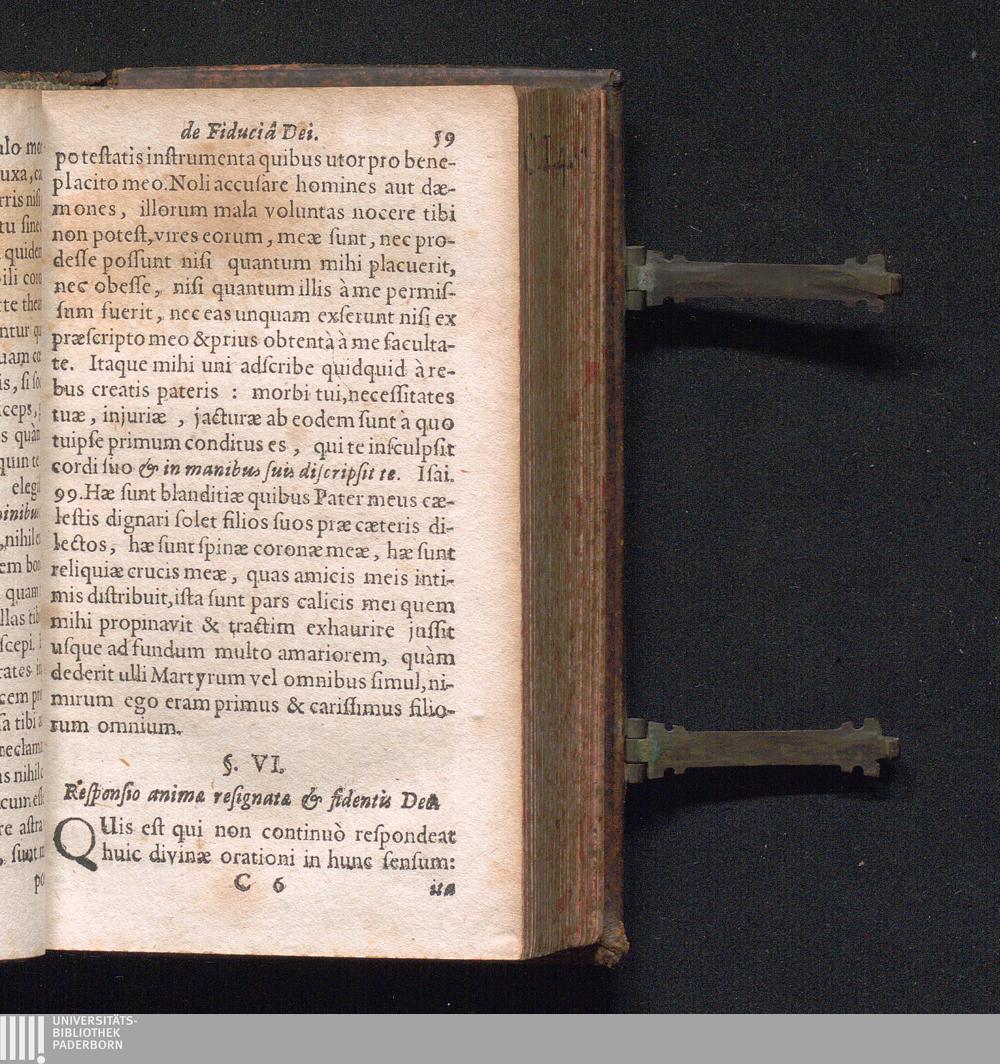 de Fiduciâ Dei. 59
poteſtatis inſtrumenta quibus utor pro bene-
placito meo. Noli accuſare homines aut dæ-
mones, illorum mala voluntas nocere tibi
non poteſt, vires eorum, meæ ſunt, nec pro-
deſſe poſſunt niſi quantum mihi placuerit,
nec obeſſe, niſi quantum illis à me permiſ-
ſum fuerit, nec eas unquam exſerunt niſi ex
præſcripto meo & prius obtentà à me faculta-
te. Itaque mihi uni adſcribe quidquid à re-
bus creatis pateris : morbi tui, neceſſitates
tuæ, injuriæ, jacturæ ab eodem ſunt à quo
tuipſe primum conditus es, qui te inſculpſit
cordi ſuo & in manibus ſuis diſcripſit te. Iſai.
99. Hæ ſunt blanditiæ quibus Pater meus cæ-
leſtis dignari ſolet filios ſuos præ cæteris di-
lectos, hæ ſunt ſpinæ coronæ meæ, hæ ſunt
reliquiæ crucis meæ, quas amicis meis inti-
mis diſtribuit, iſta ſunt pars calicis mei quem
mihi propinavit & tractim exhaurire juſſit
uſque ad fundum multo amariorem, quàm
dederit ulli Martyrum vel omnibus ſimul, ni-
mirum ego eram primus & cariſſimus filio-
rum omnium.
§. VI.
Reſponſio animæ reſignatæ & fidentis Deo.
QUis eſt qui non continuò reſpondeat
huic divinæ orationi in hunc ſenſum:
C 6 ita
UNIVERSITÄTS-
BIBLIOTHEK
PADERBORN